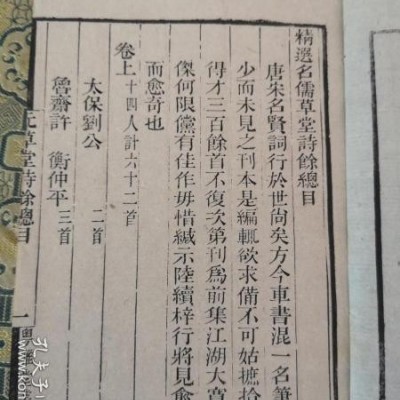 精選名儒草堂詩餘總目
唐宋名賢詞行於世尚矣方今車書混一名筆
少而未見之刊本是編輒欲求備不可姑摭拾
得才三百餘首不復次第刊為前集江湖大
傑何限儻有佳作毋惜緘示陸續梓行將見愈
而愈奇也
卷上十四人計六十二首
太保劉公 二首
魯齋許 衡仲平三首
元草堂詩餘總目 一
孔夫子